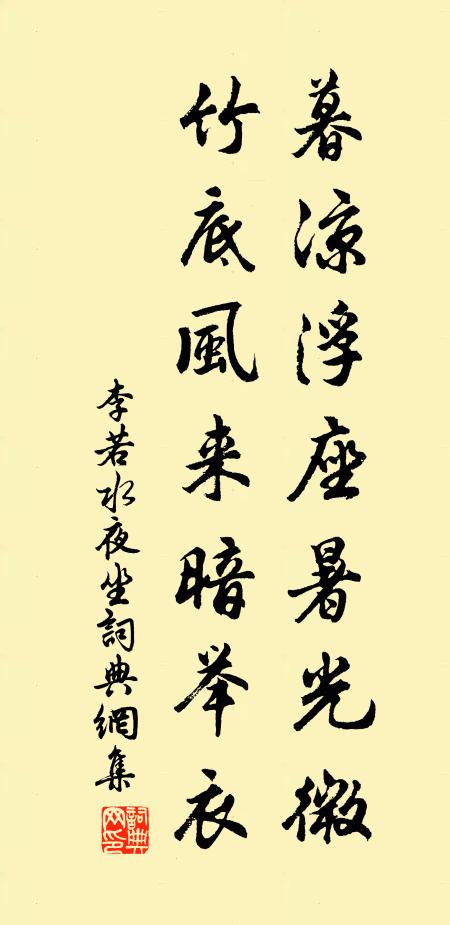 暮凉浮座暑光微
竹底風来暗举衣
李若水夜坐詞典網集
詞典網印